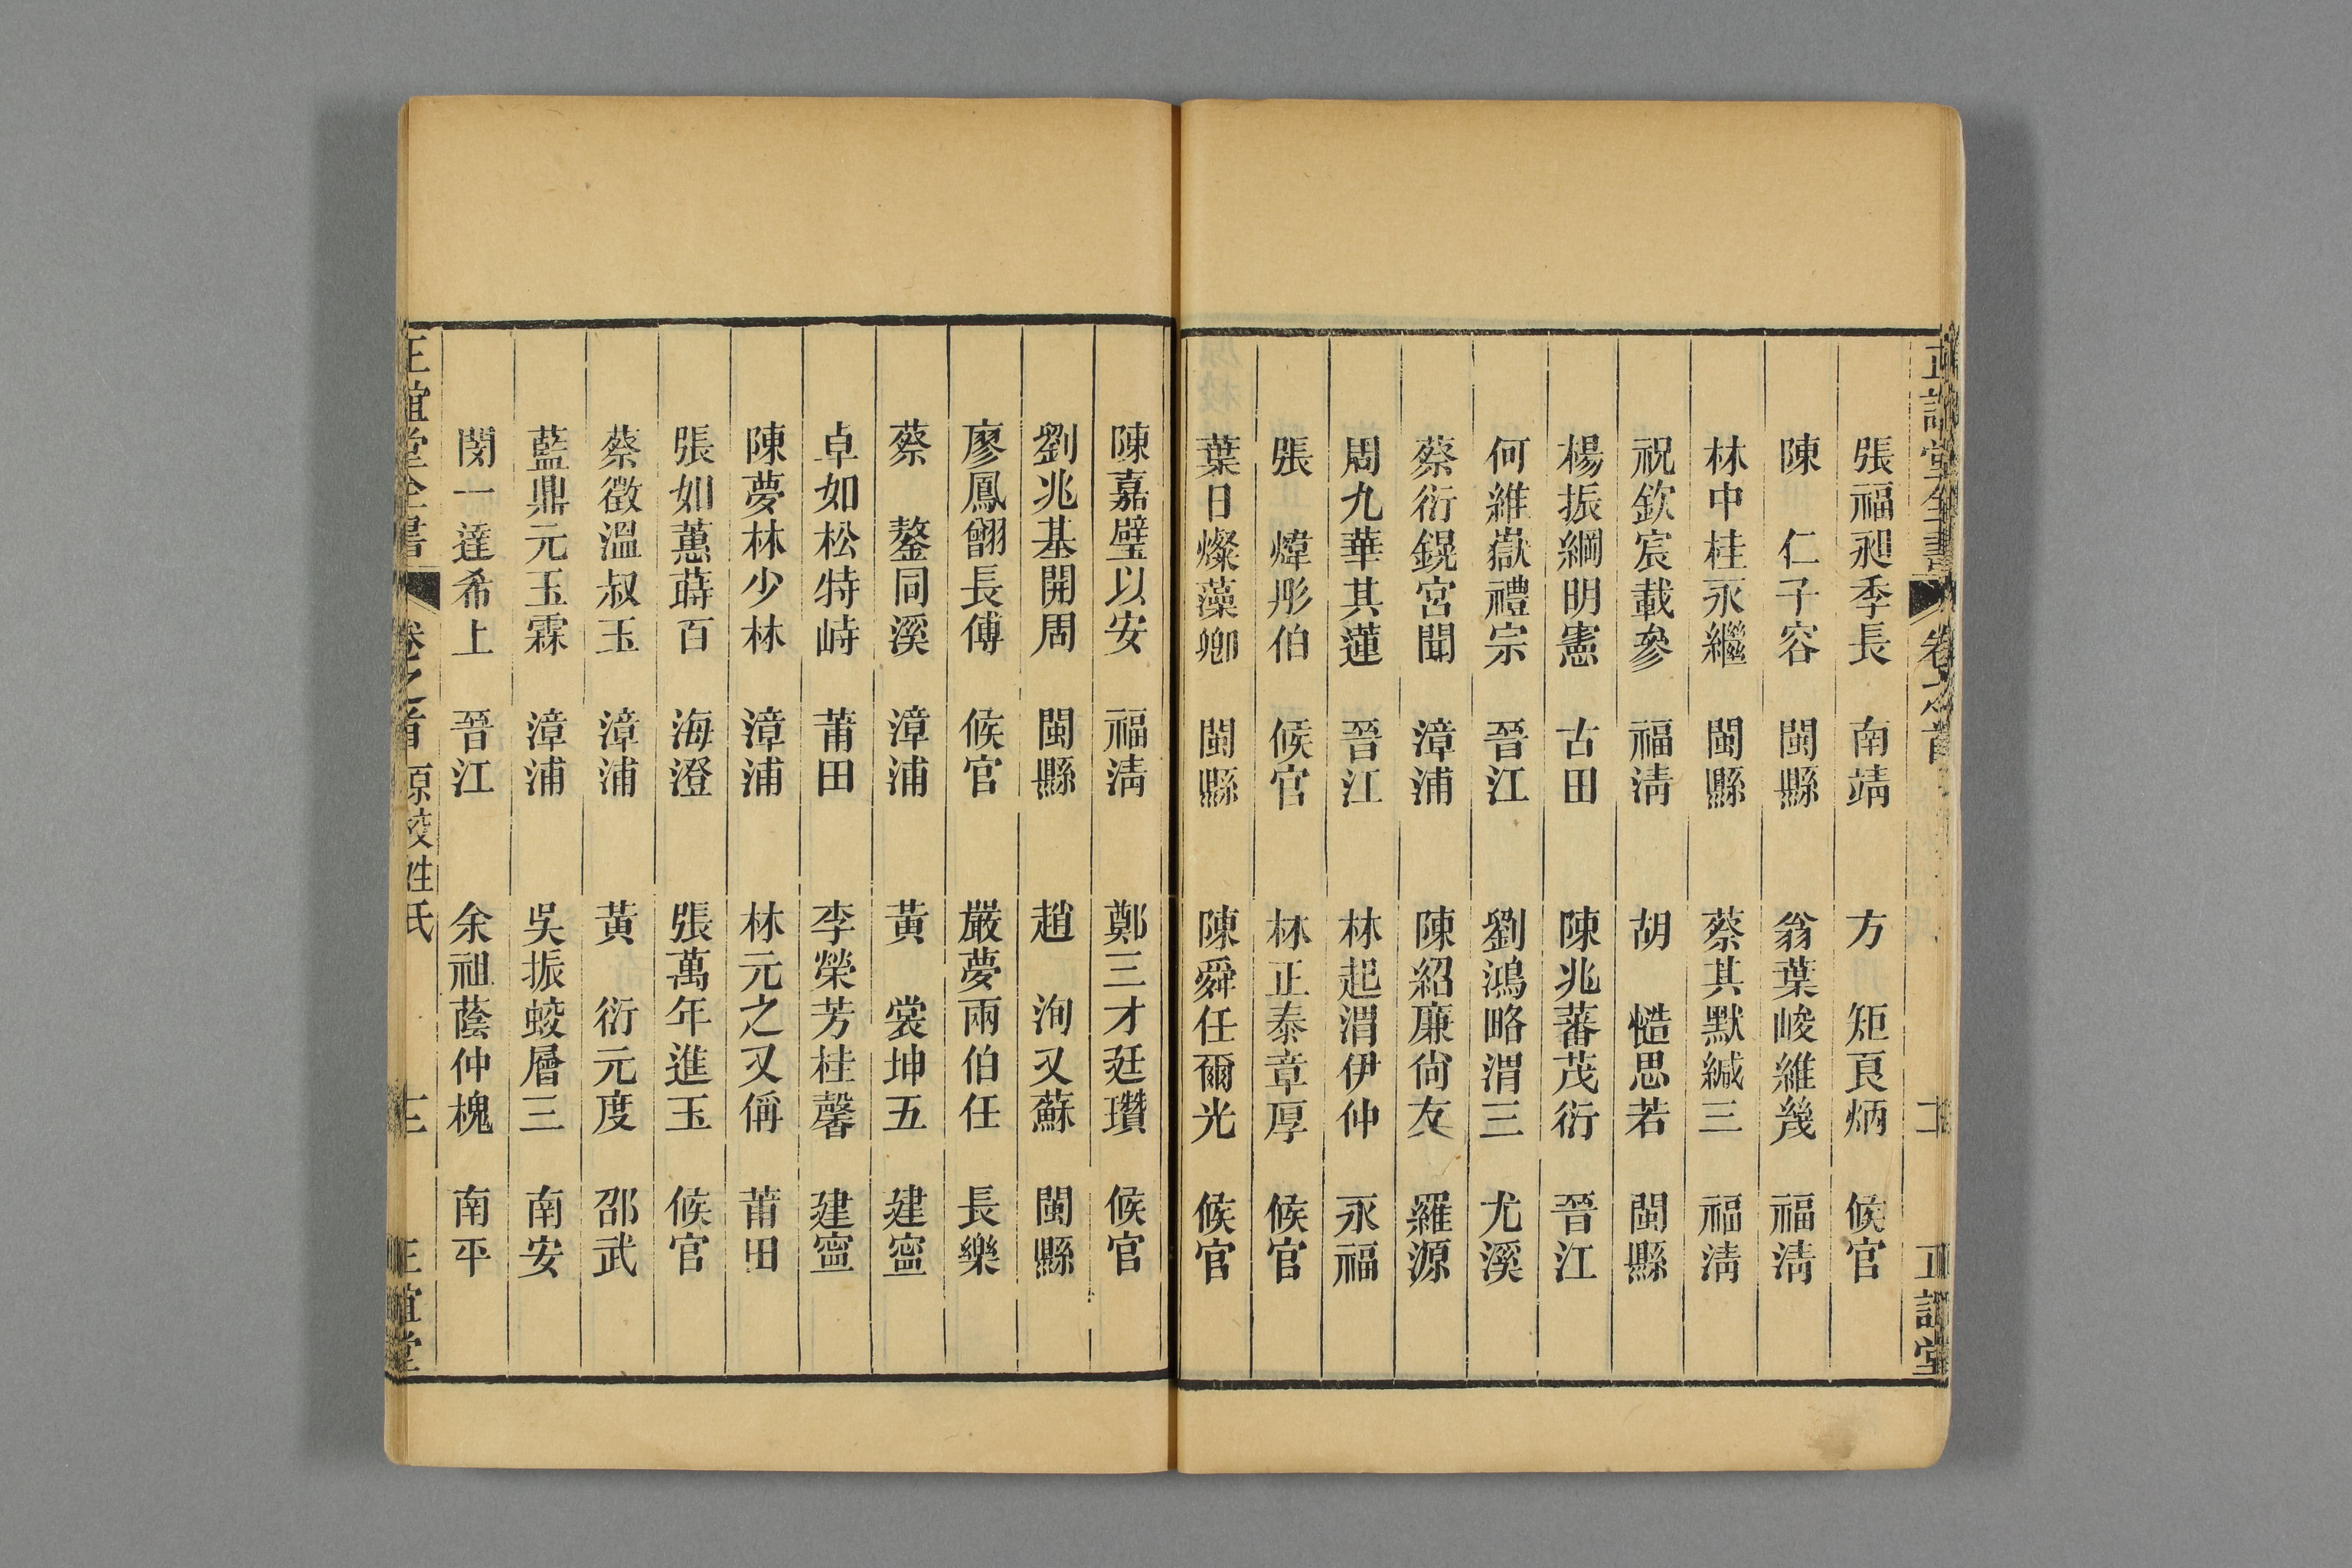 張福昶季長　南靖　方　矩良炳　候官
陳　仁子容　閩縣　翁葉峻維幾　福淸
林中桂永繼　閩縣　蔡其默緘三　福淸
祝欽宸載參　福淸　胡　慥思若　閩縣
楊振綱明憲　古田　陳兆蕃茂衍　晉江
何維嶽禮宗　晉江　劉鴻略渭三　尤溪
蔡衍鎤宮聞　漳浦　陳紹廉尙友　羅源
周九華其蓮　晉江　林起渭伊仲　永福
張　煒彤伯　候官　林正泰章厚　候官
葉日燦藻卿　閩縣　陳舜任爾光　候官
陳嘉璧以安　福淸　鄭三才廷瓚　候官
劉兆基開周　閩縣　趙　洵又蘇　閩縣
廖鳳翧長傅　候官　嚴夢兩伯任　長樂
蔡　鏊同溪　漳浦　黃　裳坤五　建寧
卓如松特峙　莆田　李榮芳桂馨　建寧
陳夢林少林　漳浦　林元之又偁　莆田
張如蕙蒔百　海澄　張萬年進玉　候官
蔡徵溫叔玉　漳浦　黃　衍元度　邵武
藍鼎元玉霖　漳浦　吳振蛟層三　南安
閔一達希上　晉江　余祖蔭仲槐　南平
正誼堂全書　卷之首　原校姓氏　三　正誼堂